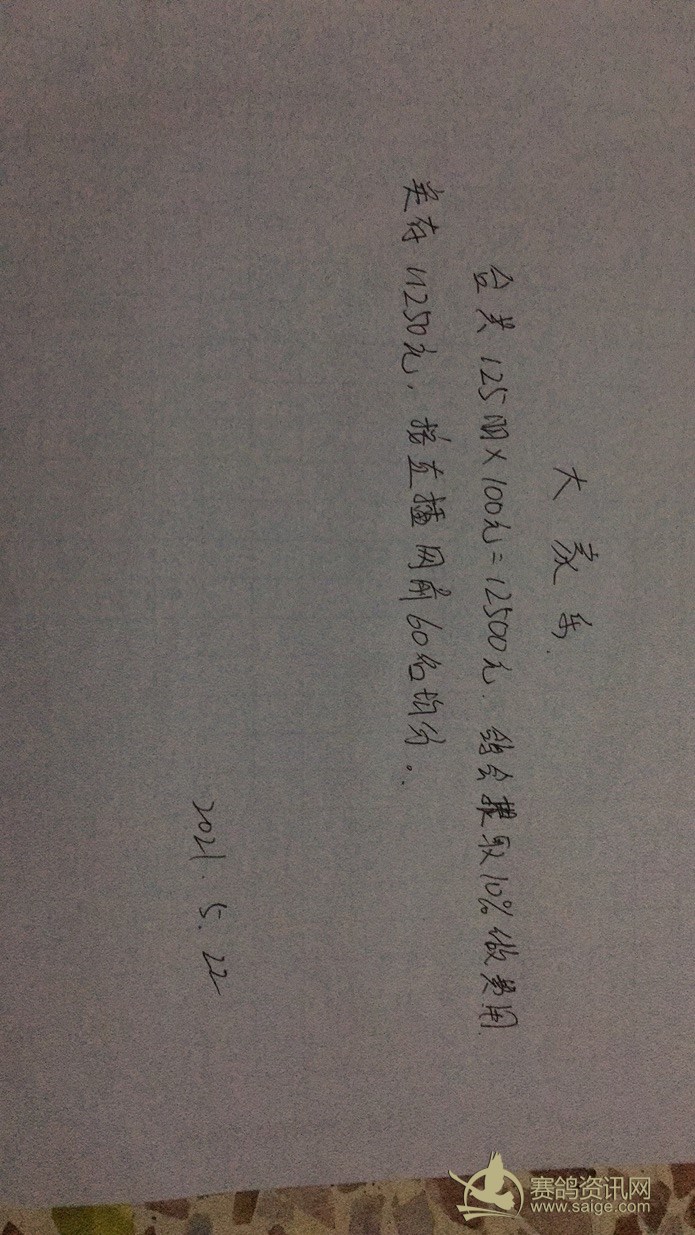 大家乐.
合共125羽×100元=12500元. 鸽会提取10%做费用
类存11250元, 按直播网前60名均分。
2021.5.22
赛鸽资讯网
www.saige.com